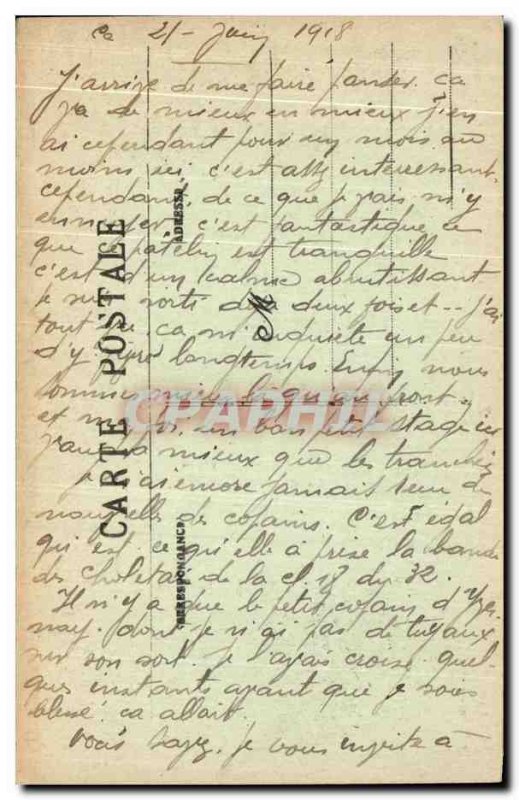 Ce 21 - Juin 1918
J'arrive de me faire panser. ca
va de mieux en mieux j'en
ai cependant pour un mois au
moins ici. c'est assez interressant.
cependant de ce que je vais m'y
ennuyer. c'est fantastique ce
que est tranquille
c'est d'un calme abrutissant
je suis sorti déjà deux fois et -- j'ai
tout vu. ca m'inquiete un peu
d'y être longtemps. Enfin nous
sommes mieux là qu'au front
et un bon petit stage ici
vaudra mieux que les tranchées
Je n'ai encore jamais reçu de
nouvelles des copains. C'est égal
qu'est ce qu'elle a prise la bande
des Choletais de la cl. 18 du 32.
Il n'y a que le petit copain d'Yzer
nay. dont je n'ai pas de tuyaux
sur son sort. je l'avais croisé quel-
ques instants avant que je sois
blessé ca allait.
Vous savez. je vous invite à
CARTE POSTALE
ADRESSE
CORRESPONDANCE
M
CPAPHIL